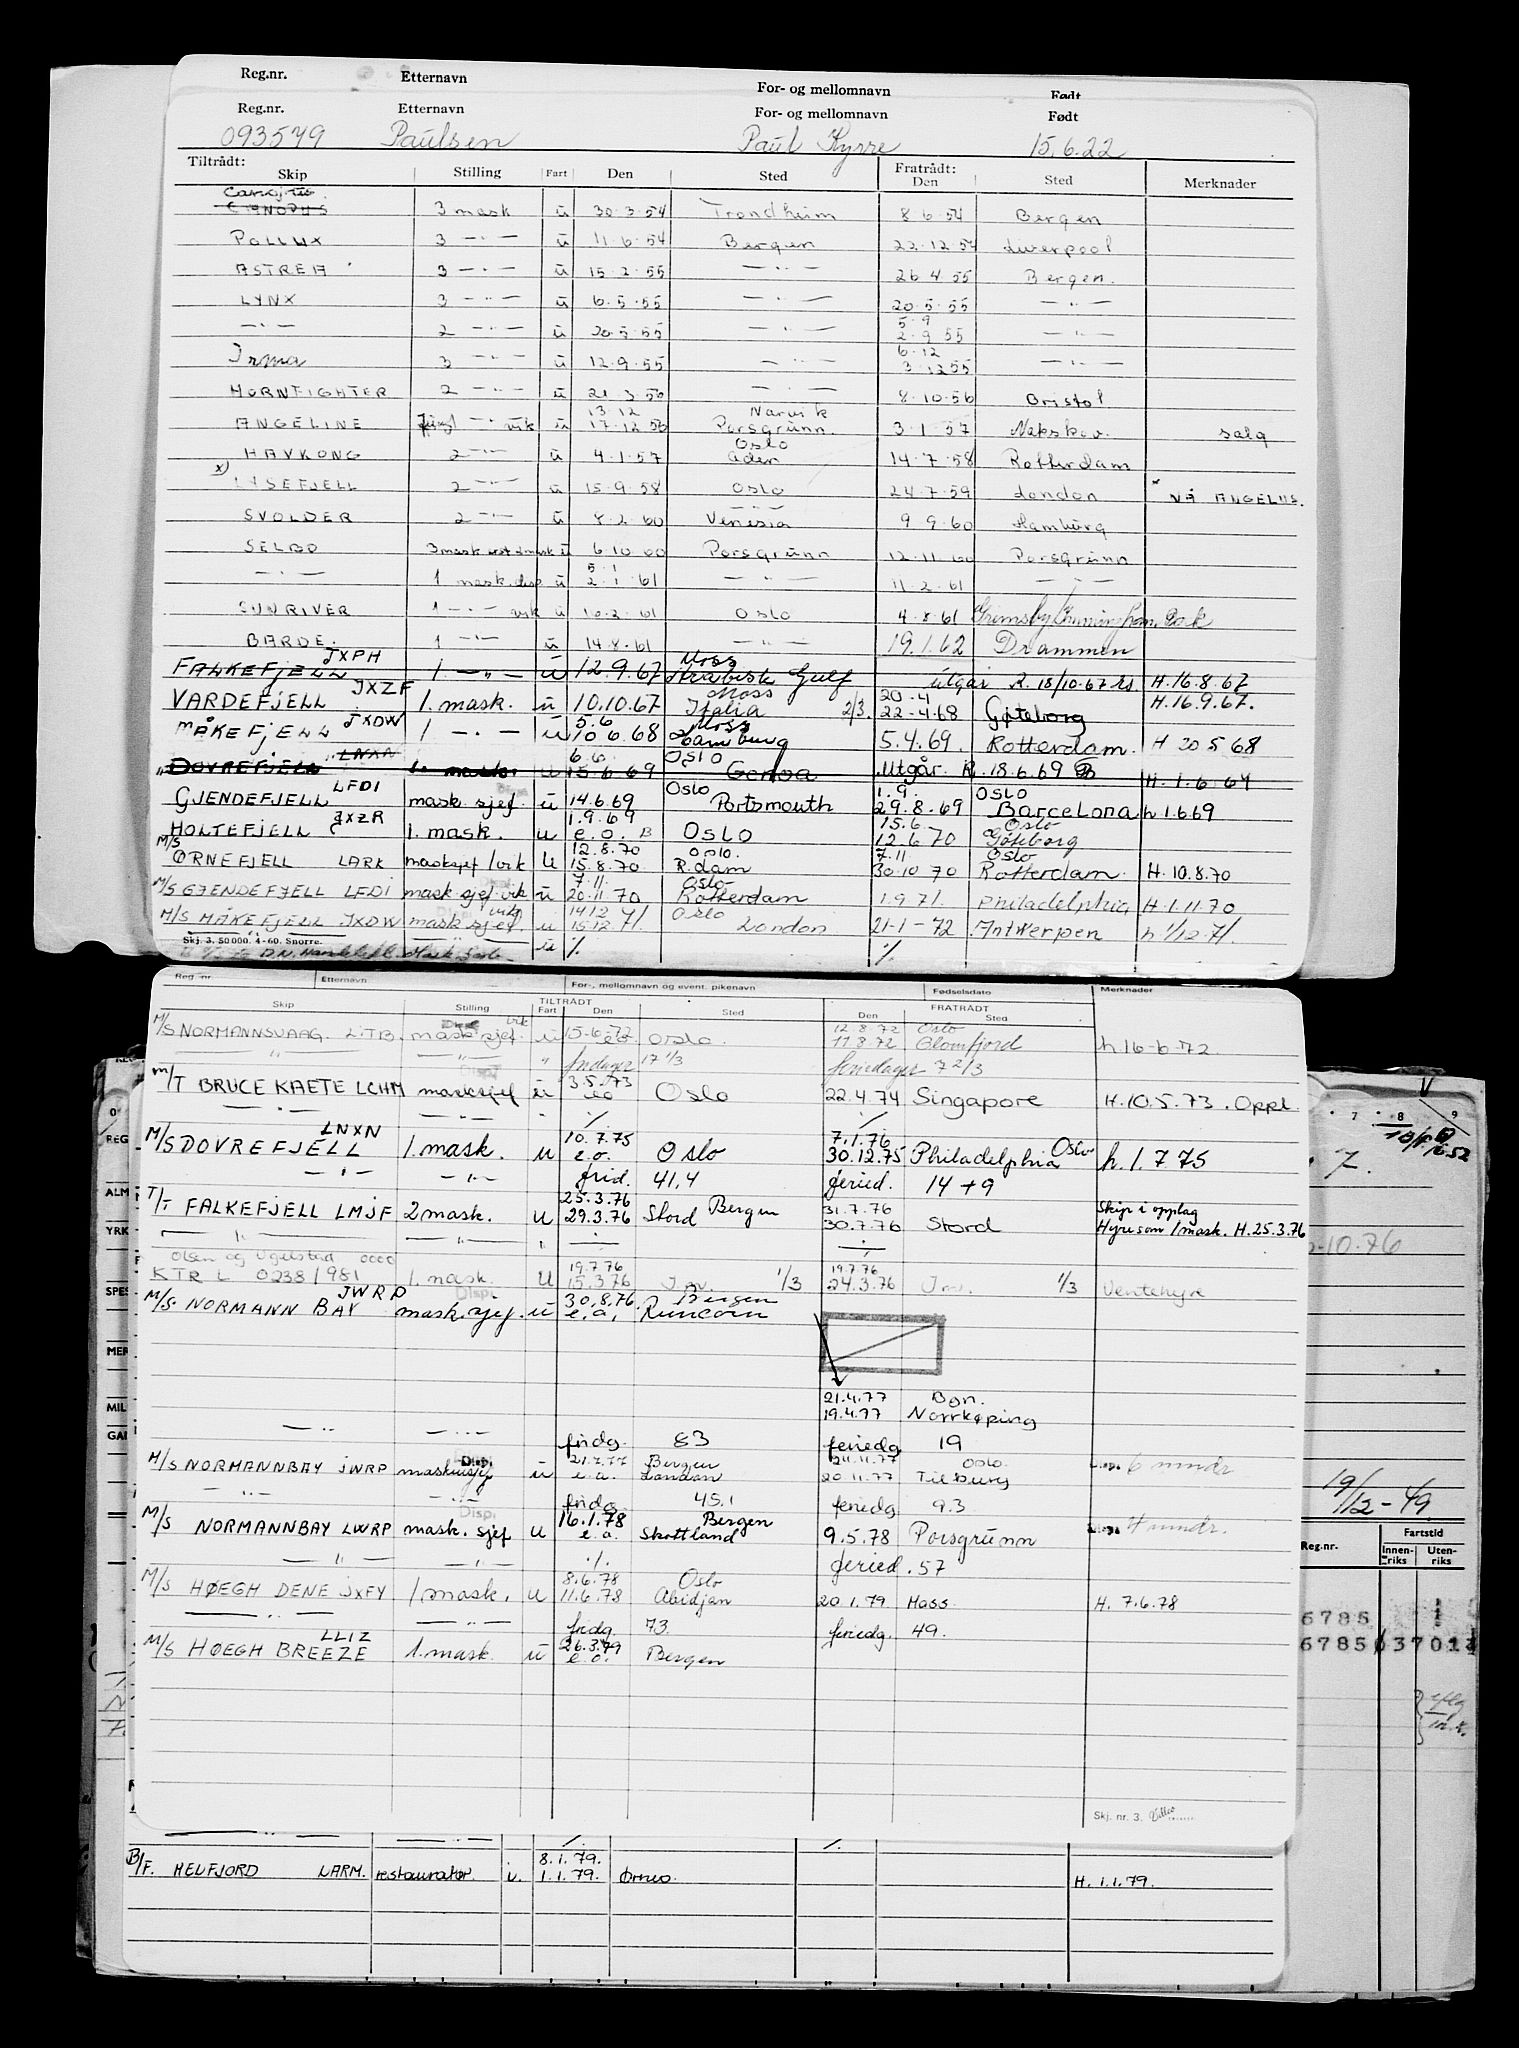 Reg.nr. Etternavn For- og mellomnavn Født
Reg.nr. Etternavn For- og mellomnavn Født
093579 Paulsen Paul Kyrre 15.6.22
Tiltrådt: Fratrådt:
Skip Stilling Fart Den Sted Den Sted Merknader
3 mask ü 30.3.54 Trondheim 8.6.54 Bergen
POLLUX 3 —"— ü 11.6.54 Bergen 22.12.54 Liverpool
ASTREA 3 —"— ü 15.2.55 —"— 26.4.55 Bergen.
LYNX 3 —"— ü 6.5.55 —"— 20.5.55 —"—
5.9
—"— 2 —"— ü 20.5.55 —"— 2.9.55 —"—
6.12
Irma 3 —"— ü 12.9.55 —"— 3.12.55 —"—
HORNFIGHTER 2 —"— ü 21.3.56 —"— 8.10.56 Bristol
13.12 Narvik
ANGELINE —"— vik ü 17.12.56 Porsgrunn. 3.1.57 Nakskov. salg
Oslo
HAVKONG 2 —"— ü 4.1.57 Aden 14.7.58 Rotterdam
x) LYSEFJELL 2 —"— ü 15.9.58 Oslo 24.7.59 London * NÅ ANGELUS.
SVOLDER 2 —"— ü 8.2.60 Venesia 9.9.60 Hamburg
SELBO 3 mask ü 6.10.60 Porsgrunn 12.11.60 Porsgrunn
5.1
—"— 1 mask. disp ü 2.1.61 —"— 11.2.61 —"—
SUNRIVER 1 —"— vik ü 16.2.61 Oslo 4.8.61 Grimsby
BARDE. 1 —"— ü 14.8.61 —"— 19.1.62 Drammen
JXPH Moss
FALKEFJELL 1 —"— ü 12.9.67 Arabisk Gulf utgår R. 18/10.67 H.16.8.67
JXZF Moss 20.4
VARDEFJELL 1. mask. ü 10.10.67 Italia 2/3. 22.4.68 Gøteborg H.16.9.67.
JXDW 5.6 Moss
MÅKEFJELL 1 —"— ü 10 6.68 Hamburg 5.4.69. Rotterdam. H 20 5 68
LNXN 6.6 Oslo
DOVREFJELL 1. mask. u 15.6.69 Genoa Utgår. R. 18.6.69 H. 1.6.69
LFDI Oslo 1.9. Oslo
GJENDEFJELL mask. sjef. ü 14.6.69 Portsmouth 29.8.69 Barcelona h 1.6.69
JXZR 1.9.69 15.6. Oslo
HOLTEFJELL 1. mask. u e.o. B Oslo 12.6.70 Gøteborg
M/S 12.8.70 Oslo. 7.11. Oslo
ØRNEFJELL LARK masksjef/vik u 15.8.70 R.dam 30.10 70 Rotterdam. H.10.8.70
7.11. Oslo
M/S GJENDEFJELL LFDI mask.sjef.vik ü 20.11.70 Rotterdam 1.9.71. Philadelphia H.1.11.70
14.12 Oslo
M/S MÅKEFJELL JXDW mask sjef. u 15.12.71. London 21-1-72 Antwerpen h 1/12-71.
Skj. 3. 50 000. 4-60. Snorre. ü ./. ./.
Reg. nr. Etternavn For-, mellomnavn og event. pikenavn Fødselsdato Merknader
TILTRÅDT FRATRÅDT
Skip Stilling Fart Den Sted Den Sted
vik 12.8.72 Oslo
M/S NORMANNSVAAG. LITB. mask sjef. ü 15-6-72 eo Oslo. 11.8.72 Glomfjord h 16-6-72.
—"— —"— " fridager 17 1/3 feriedager 7 2/3
3.5.73
M/T BRUCE KAETE LCHM masksjef ü eo Oslo 22.4.74 Singapore H.10.5.73. Oppl.
—"— —"— ./.
LNXN 10.7.75 7.1.76 Oslo
M/S DOVREFJELL 1. mask. u e.o. Oslo 30.12.75 Philadelphia h. 1.7 75
—"— —"— frid. 41,4 feried. 14 + 9
25.3.76 Bergen 31.7.76 Skip i opplag
T/T FALKEFJELL LMJF 2 mask. u 29.3.76 Stord 30.7.76 Stord Hyre som 1 mask. H.25.3.76
—"— —"— " ./. ./.
Olsen og Ugelstad 0000 19.7.76 19.7.76
KTR L 0238/981 1. mask. u 15.3.76 1/3 24.3.76 1/3 Ventehyre
JWRP Disp. 30.8.76. Bergen
M/S. NORMANN BAY mask. sjef. ü e.o. Runcorn
21.4.77 Bgn.
19.4.77 Norrkøping
—"— —"— fridg. 83 feriedg. 19
Disp. 21.7.77 Bergen 24.11.77 Oslo.
M/S NORMANNBAY JWRP maskinsjef ü e.o. London 20.11.77 Tilburg Disp. 6 mndr
—"— —"— fridg. 45.1 feriedg. 9.3
Disp. 16.1.78 Bergen
M/S NORMANNBAY LWRP mask. sjef u e.o. Skottland 9.5.78 Porsgrunn Disp. 4 mndr.
—"— —"— ./. feried. 57
8.6.78 Oslo
M/S HØEGH DENE JXFY 1. mask. u 11.6.78 Abidjan 20.1.79 Moss. H. 7.6.78
—"— —"— fridg. 73 feriedg. 49.
LLIZ 26.3.79
M/S HØEGH BREEZE 1. mask. ü e.o. Bergen
Skj. nr. 3.
—"— —"— ./. ./.
8.1.79.
B/F. HELFJORD LARM. restauratør. i. 1.1.79. H. 1.1.79.
0 7 8 9
REG
ALM
YRK
SPES
MER
MIL
7.
10.76
19/12-49
Reg.nr. Fartstid
Innenriks Utenriks
6785
6785 037014